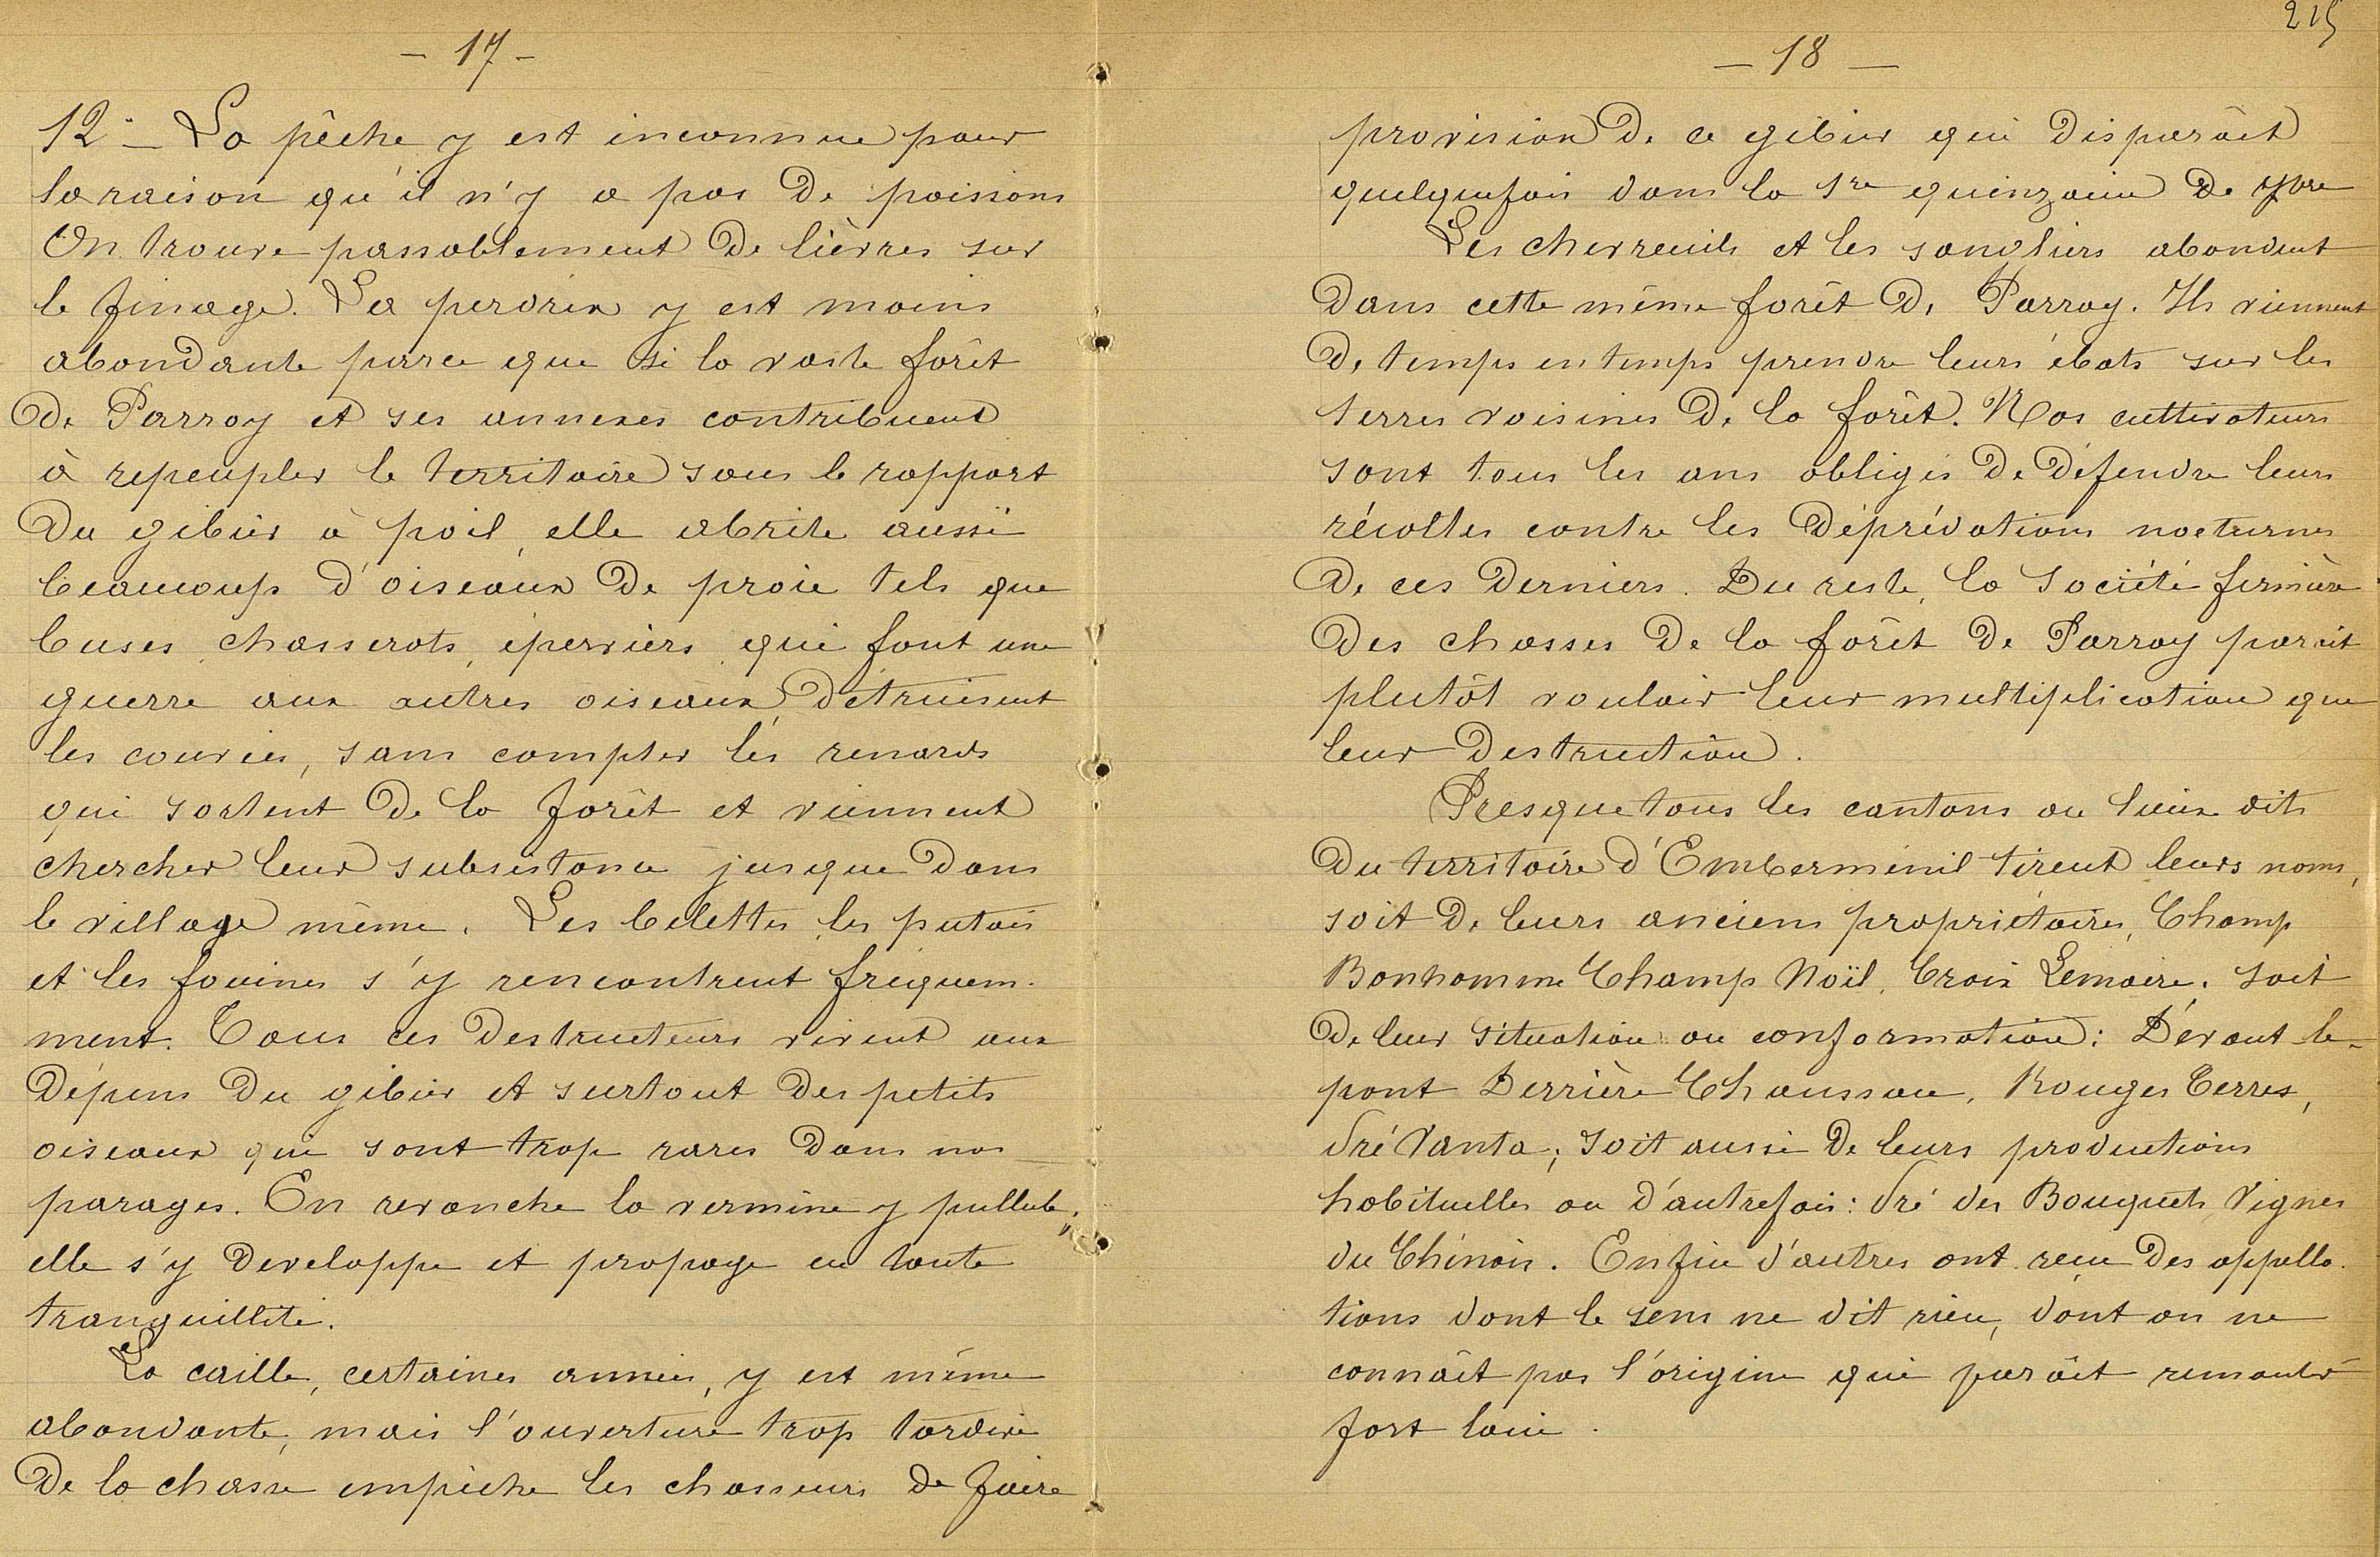 - 17 -
12° - La pêche y est inconnue pour
la raison qu'il n'y a pas de poissons
On trouve passablement de lièvres sur
le finage. La perdrix y est moins
abondante parce que si la vaste forêt
de Parroy et ses annexes contribuent
à repeupler le territoire sous le rapport
du gibier à poil, elle abrite aussi
beaucoup d'oiseaux de proie tels que
buses, chasserots, éperviers, qui font une
guerre aux autres oiseaux, détruisent
les couvées, sans compter les renards
qui sortent de la forêt et viennent
chercher leur subsistance jusque dans
le village même. Les belettes, les putois
et les fouines s'y rencontrent fréquem-
ment. Tous ces destructeurs vivent aux
dépens du gibier et surtout des petits
oiseaux qui sont trop rares dans nos
parages. En revanche la vermine y pullule,
elle s'y developpe et propage en toute
tranquillité.
La caille, certaines années, y est même
abondante, mais l'ouverture trop tardive
de la chasse empêche les chasseurs de faire
215
- 18 -
provision de ce gibier qui disparaît
quelquefois dans la 1re quinzaine de 7bre
Les chevreuils et les sangliers abondent
dans cette même forêt de Parroy. Ils viennent
de temps en temps prendre leurs ébats sur les
terres voisines de la forêt. Nos cultivateurs
sont tous les ans obligés de défendre leurs
récoltes contre les déprédations nocturnes
de ces derniers. Du reste, la société fermière
des chasses de la forêt de Parroy paraît
plutôt vouloir leur multiplication que
leur destruction.
Presque tous les cantons ou lieux dits
du territoire d'Emberménil tirent leurs noms,
soit de leurs anciens propriétaires, Champ
Bonhomme Champ Noël, Croix Lemaire, soit
de leur situation ou conformation: Devant le-
pont Derrière Chaussau, Rouges Terres,
Pré Vanta; soit aussi de leurs productions
habituelles ou d'autrefois: Pré des Bouquets, Vignes
du Chinois. Enfin d'autres ont reçu des appella-
tions dont le sens ne dit rien, dont on ne
connaît pas l'origine qui paraît remonter
fort loin.